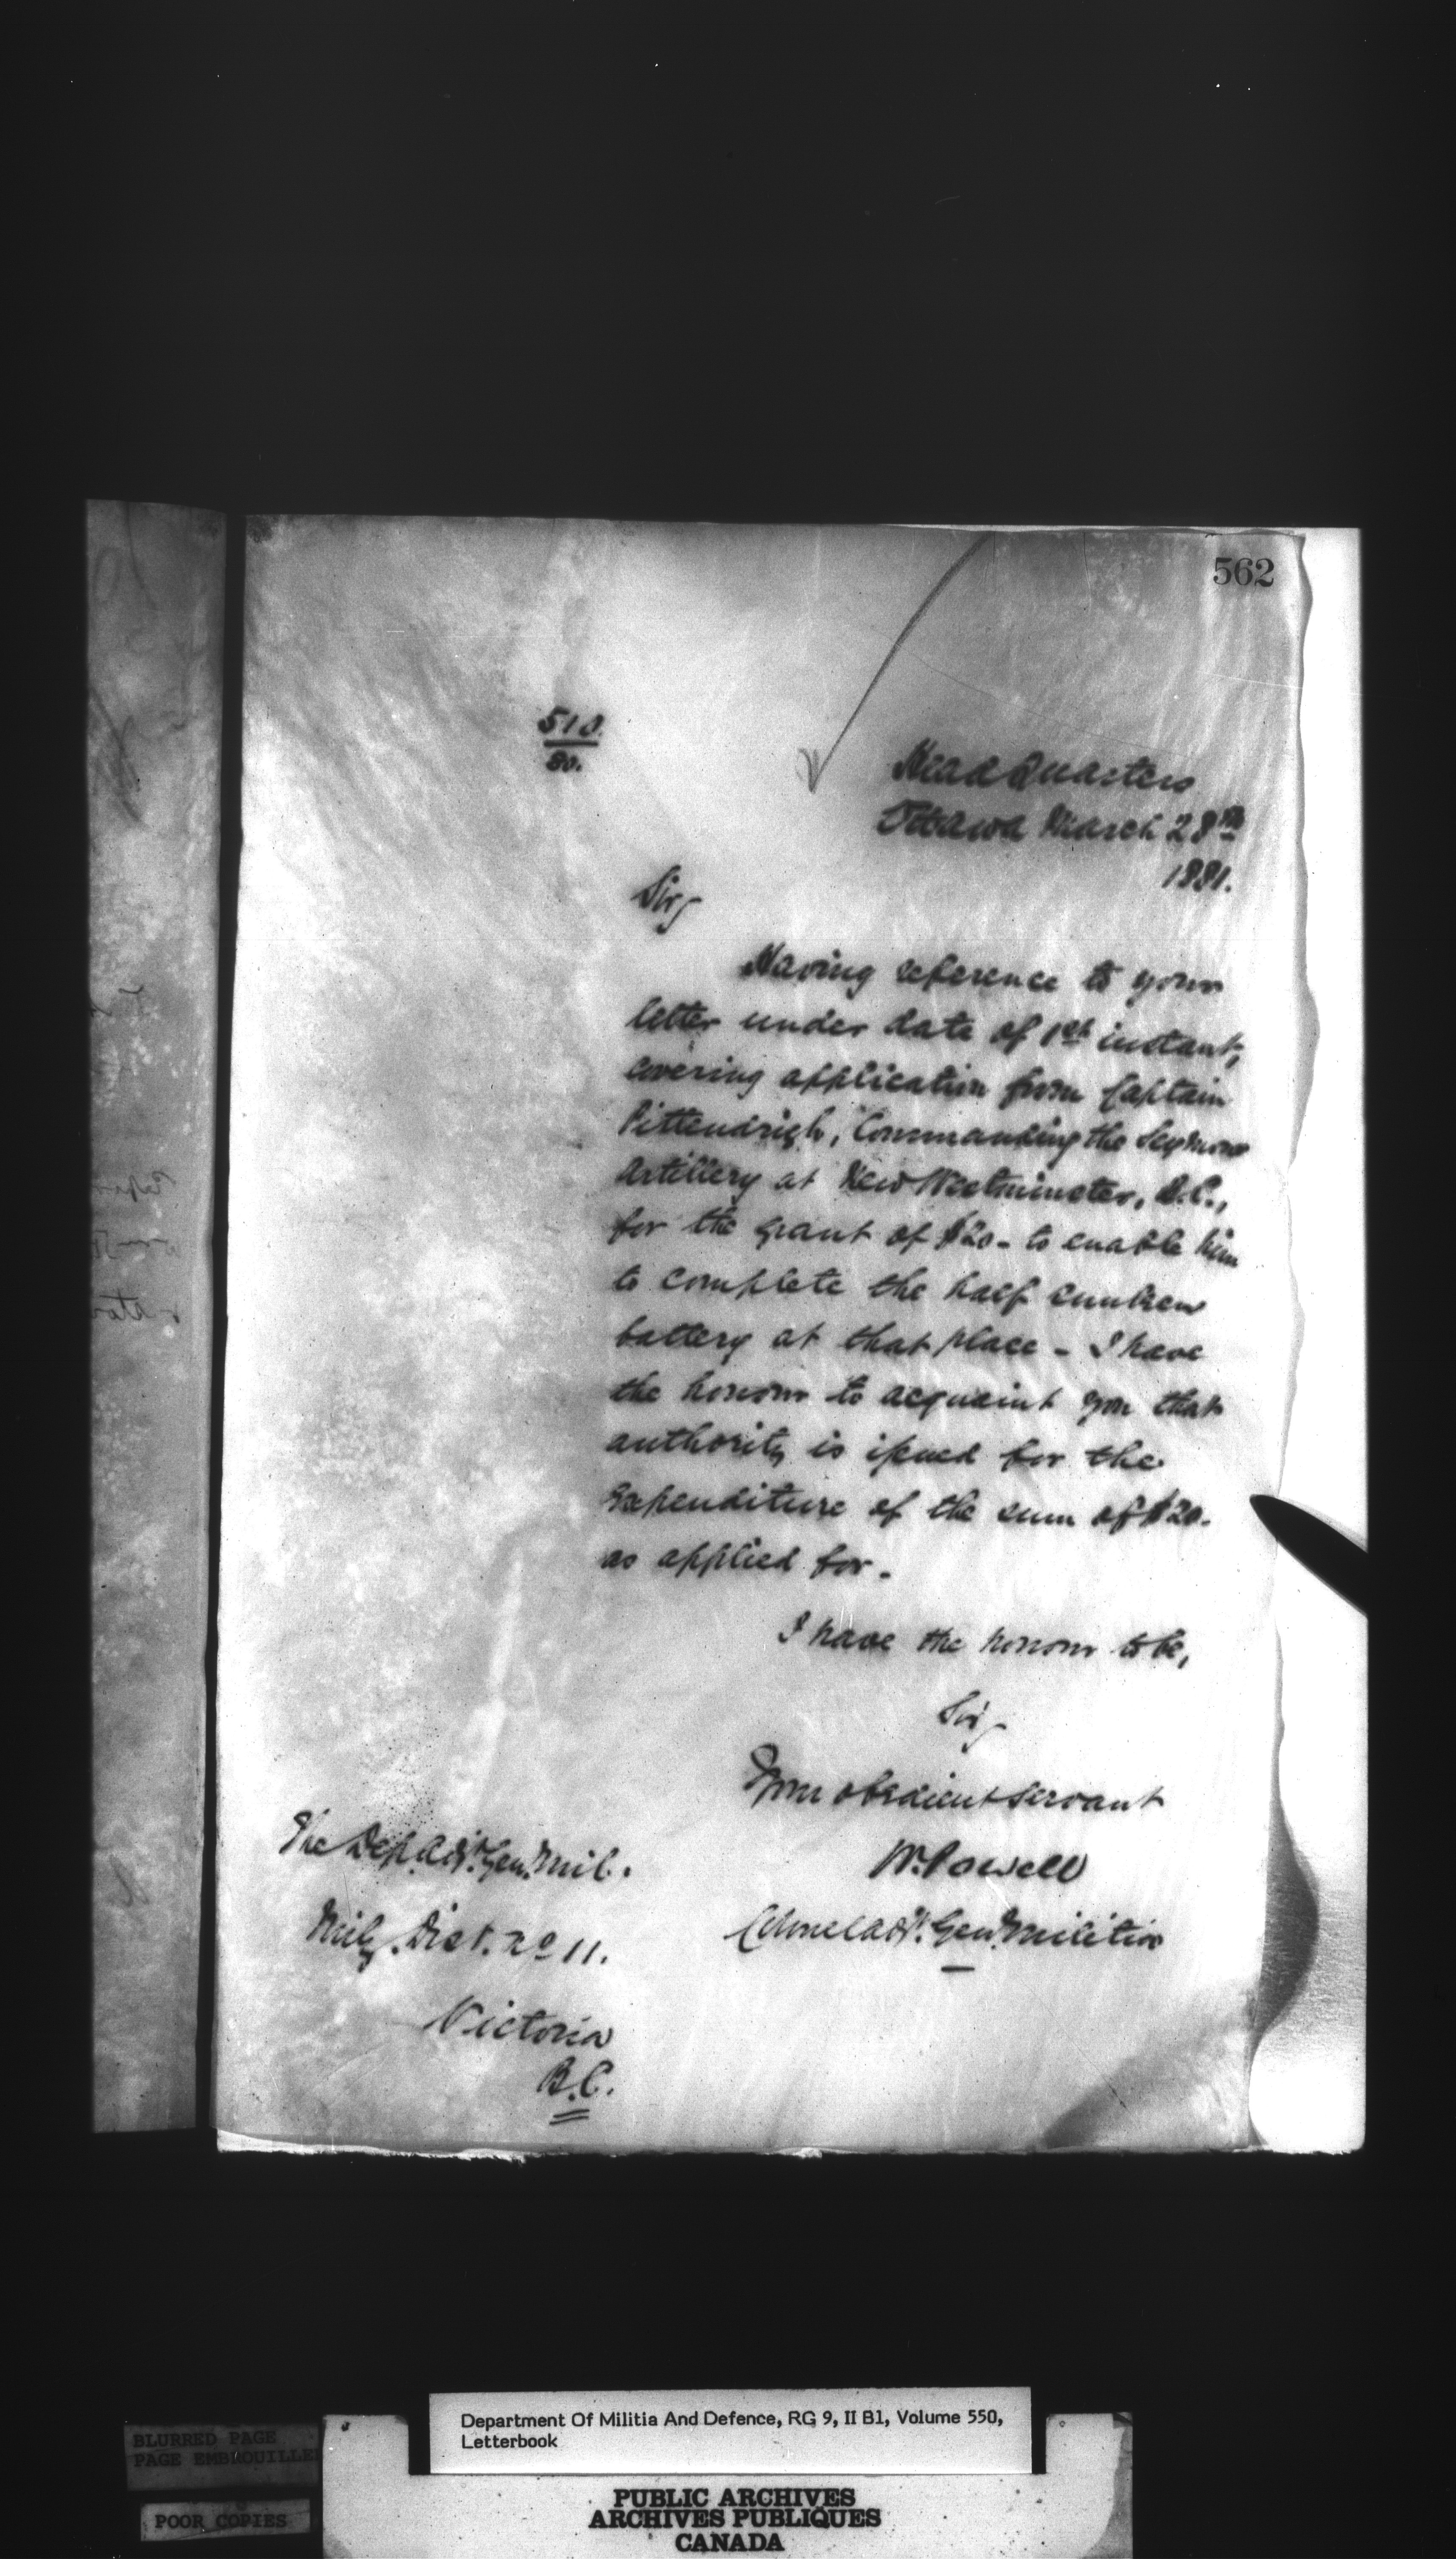 562
510.
80.
Head Quarters
Ottawa March 28th
1881.
Sir,
Having reference to your
letter under date of 1st instant,
covering application from Captain
Pittendrigh, Commanding the Seymour
Artillery at New Westminster, B.C.,
for the grant of $20 - to enable him
to complete the half sunken
battery at that place - I have
the honour to acquaint you that
authority is issued for the
expenditure of the sum of $20.
as applied for -
I have the honour to be,
Sir,
Your obedient servant
W. Powell
Colonel Adjt. Genl. Militia
The Dep. Adjt. Genl. Mil.
Mily. Dist. No 11.
Victoria
B.C.
Department Of Militia And Defence, RG 9, II B1, Volume 550,
Letterbook
BLURRED PAGE
PAGE EMBROUILLE
POOR COPIES
PUBLIC ARCHIVES
ARCHIVES PUBLIQUES
CANADA